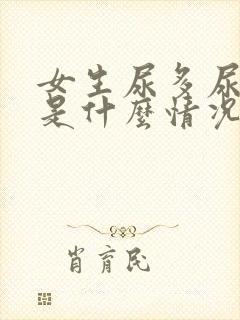 女生尿多尿
是什麼情況
肖育民